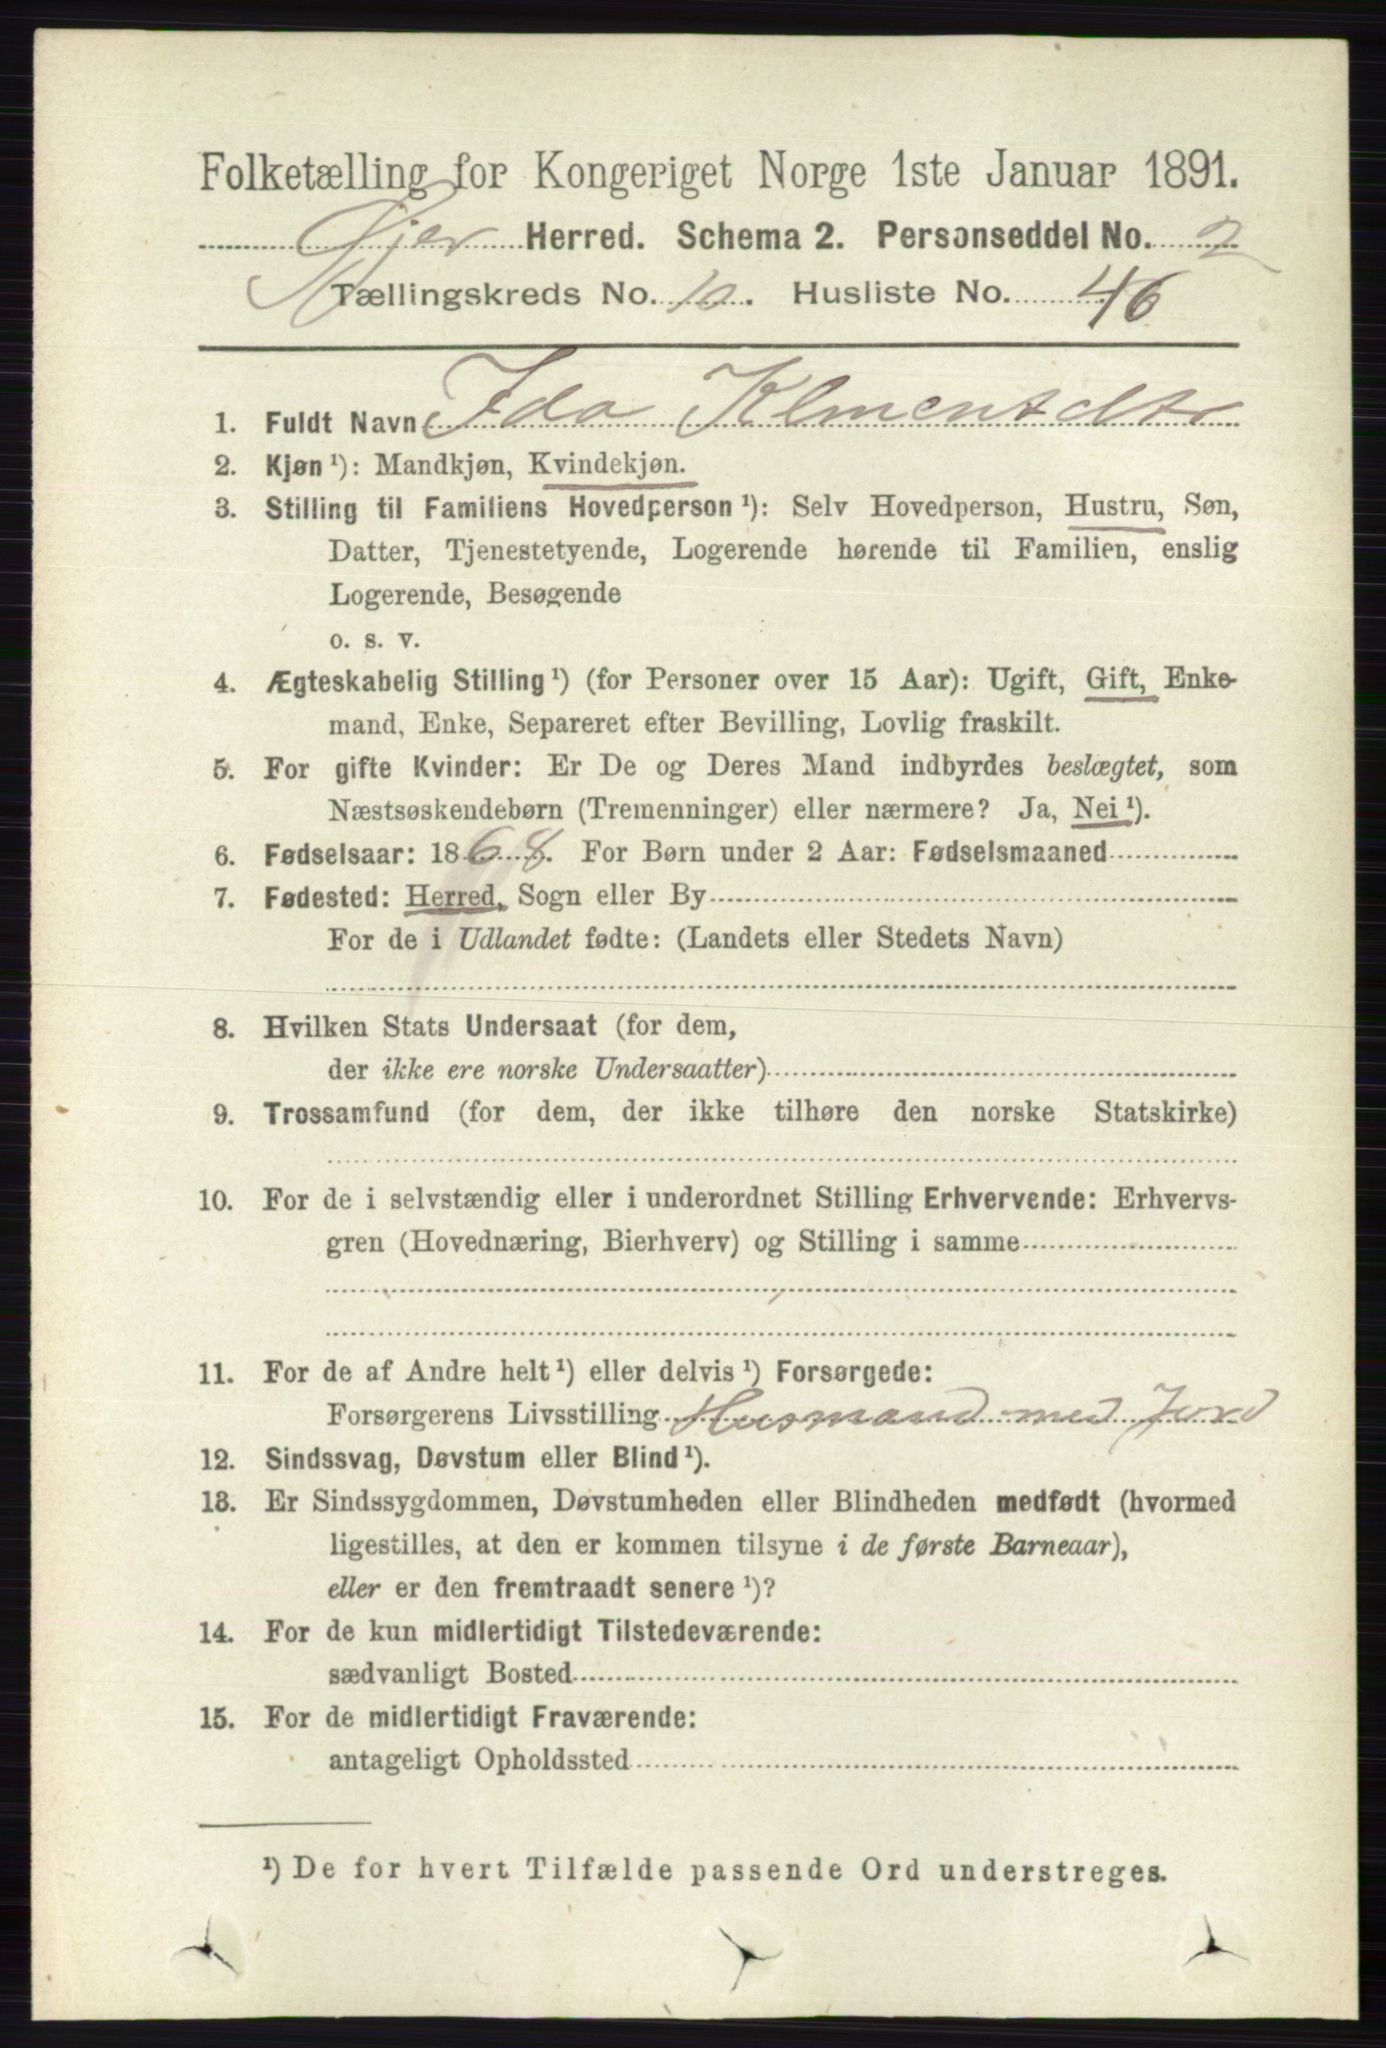 Folketælling for Kongeriget Norge 1ste Januar 1891.
Øjer Herred. Schema 2. Personseddel No. 2
Tællingskreds No. 10. Husliste No. 46
1. Fuldt Navn Ida Klmentdtr
2. Kjøn ¹): Mandkjøn, Kvindekjøn.
3. Stilling til Familiens Hovedperson ¹): Selv Hovedperson, Hustru, Søn,
Datter, Tjenestetyende, Logerende hørende til Familien, enslig
Logerende, Besøgende
o. s. v.
4. Ægteskabelig Stilling ¹) (for Personer over 15 Aar): Ugift, Gift, Enke-
mand, Enke, Separeret efter Bevilling, Lovlig fraskilt.
5. For gifte Kvinder: Er De og Deres Mand indbyrdes beslægtet, som
Næstsøskendebørn (Tremenninger) eller nærmere? Ja, Nei ¹).
6. Fødselsaar: 1868. For Børn under 2 Aar: Fødselsmaaned
7. Fødested: Herred, Sogn eller By
For de i Udlandet fødte: (Landets eller Stedets Navn)
8. Hvilken Stats Undersaat (for dem,
der ikke ere norske Undersaatter)
9. Trossamfund (for dem, der ikke tilhøre den norske Statskirke)
10. For de i selvstændig eller i underordnet Stilling Erhvervende: Erhvervs-
gren (Hovednæring, Bierhverv) og Stilling i samme
11. For de af Andre helt ¹) eller delvis ¹) Forsørgede:
Forsørgerens Livsstilling Husmand med Jord
12. Sindssvag, Døvstum eller Blind ¹).
13. Er Sindssygdommen, Døvstumheden eller Blindheden medfødt (hvormed
ligestilles, at den er kommen tilsyne i de første Barneaar),
eller er den fremtraadt senere ¹)?
14. For de kun midlertidigt Tilstedeværende:
sædvanligt Bosted
15. For de midlertidigt Fraværende:
antageligt Opholdssted
¹) De for hvert Tilfælde passende Ord understreges.